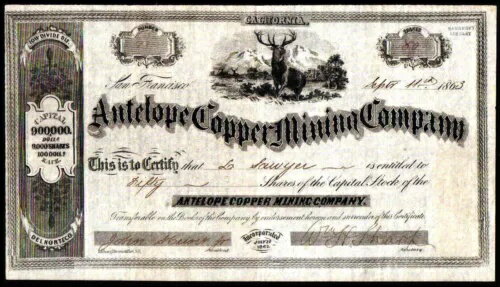 CALIFORNIA.
NUMBER
SHARES
LOW DIVIDE DIST
50
San Francisco
Septr 11th 1863
Antelope Copper Mining Company
CAPITAL
900000.
DOLLS
9000 SHARES
100 DOLLS
EACH.
DEL NORTE CO
This is to Certify that L Sawyer is entitled to
Fifty Shares of the Capital Stock of the
ANTELOPE COPPER MINING COMPANY.
Transferable on the Books of the Company by endorsement hereon and surrender of this Certificate.
Incorporated
JULY
1863.
President
Secretary